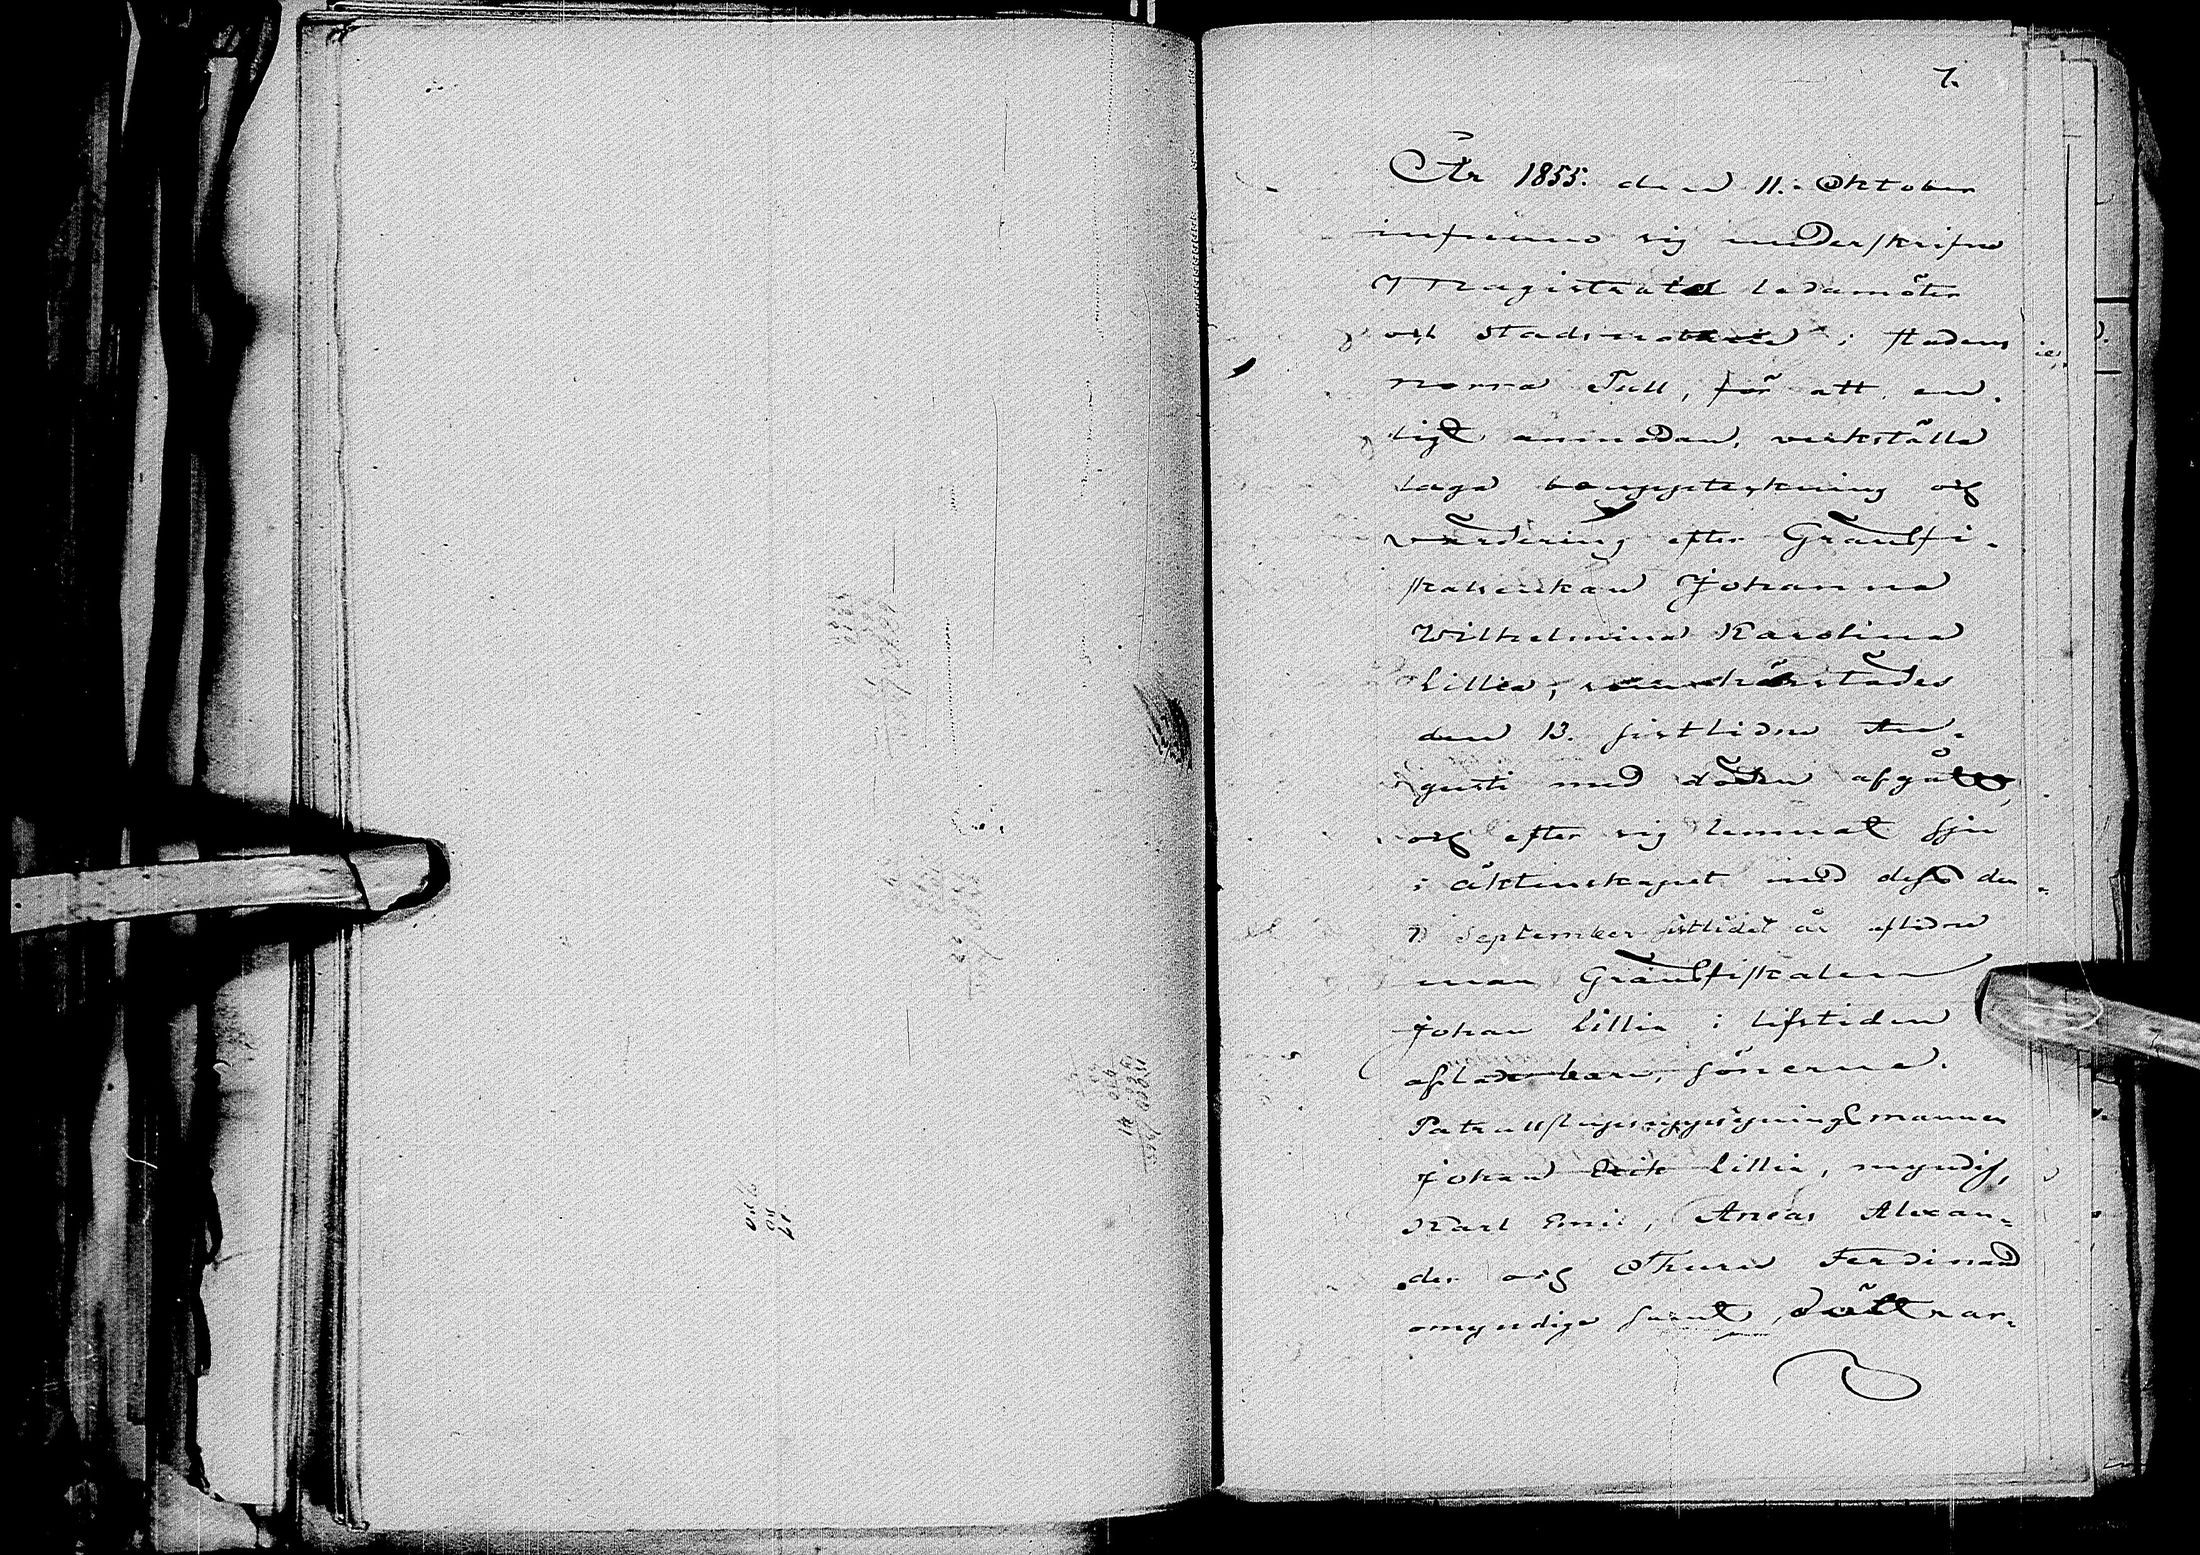 7.
År 1855. den 11. Oktober
infunno sig underskrifne
Magistrats ledamöter
och Stadsnotarie i stadens
norra Tull, för att en-
ligt anmodan, verkställa
laga bouppteckning och
värdering efter Gränsfi-
skalsenkan Johanna
Wilhelmina Karolina
Lillia, som härstädes
den 13. sistlidne Au-
gusti med döden afgått,
och efter sig lemnat sju
i äktenskapet med dess den
7 September sistlidet år aflidne
man Gränsfiskalen
Johan Lillia i lifstiden
aflade barn, sönerne.
Patrullsuppsyningsmannen
Johan Erik Lillia, myndig,
Karl Emil, Aneas Alexan-
der och Thure Ferdinand
omyndige samt döttrar-